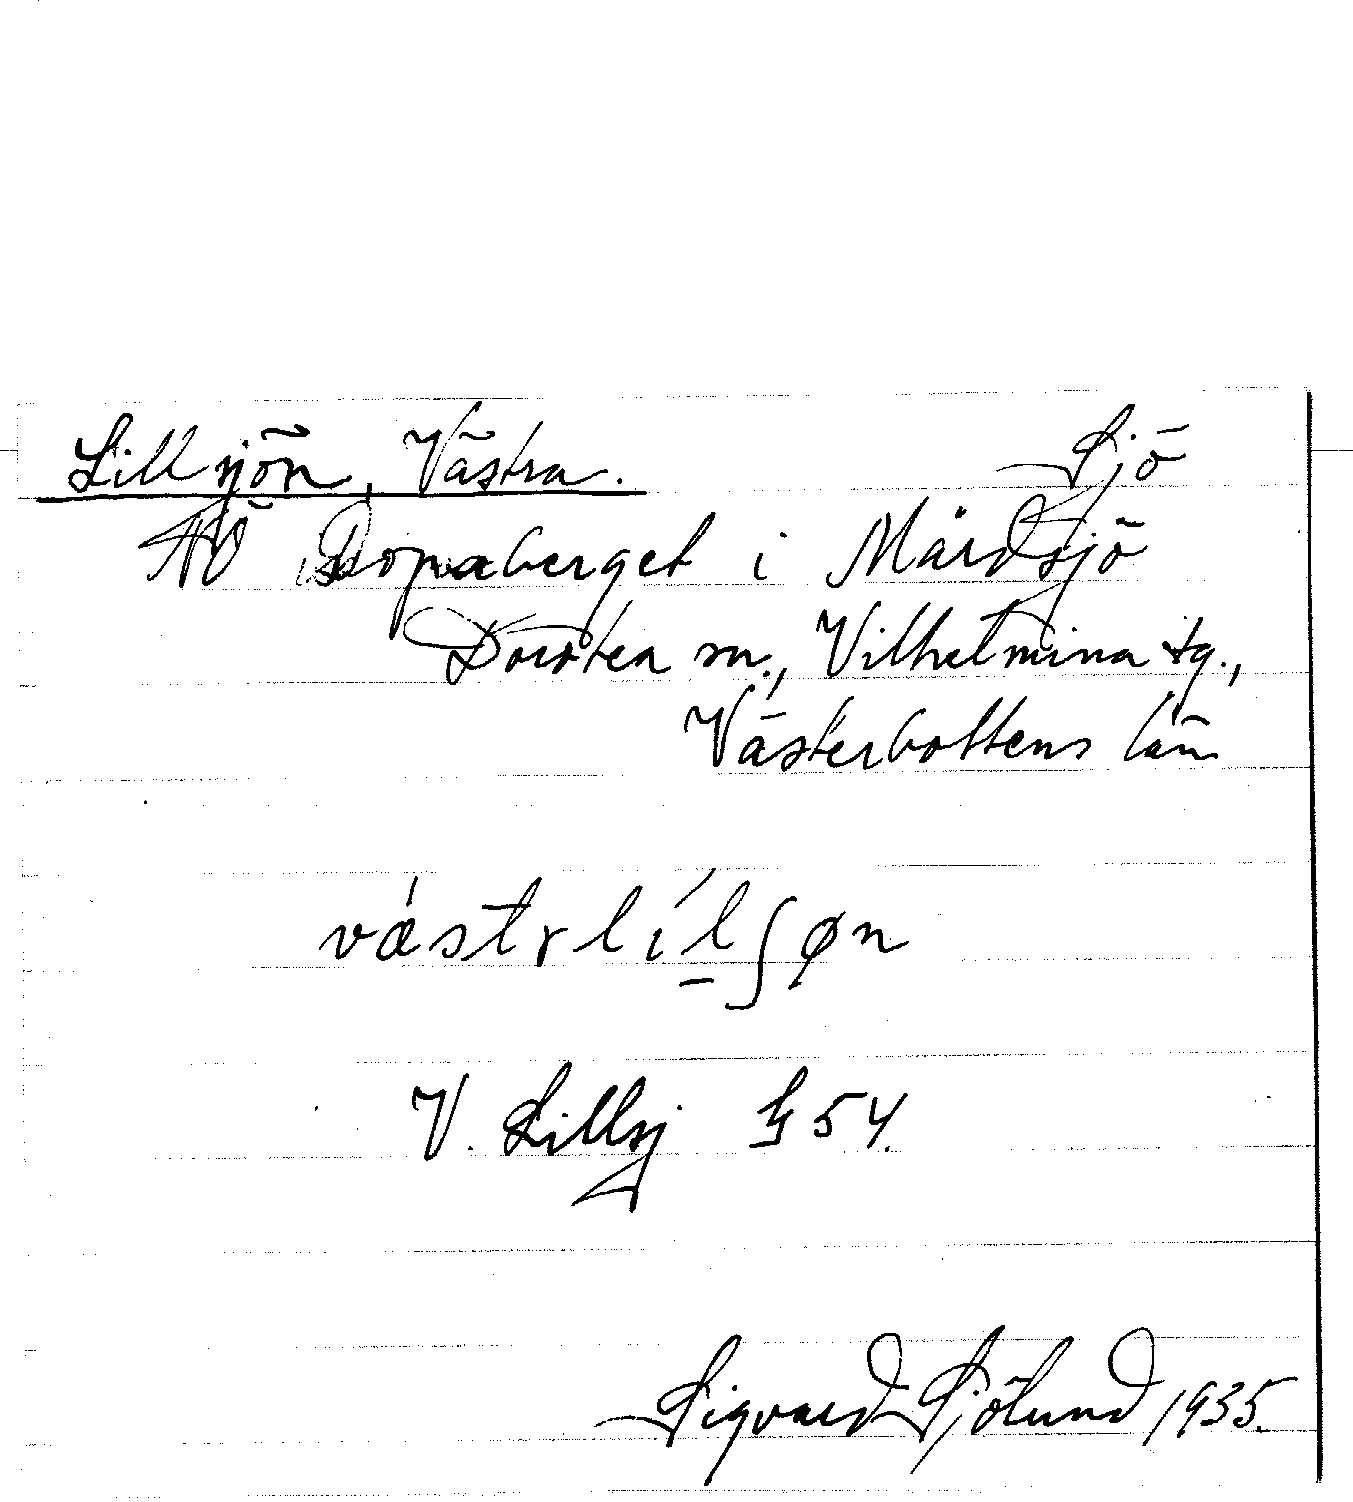 Lillsjön, Västra. Sjö
NÖ Dopraberget i Mårdsjö
Dorotea sn., Vilhelmina tg.,
Västerbottens län
væstrlílʃøn
V. Lillsj G 54.
Sigvard Sjölund 1935.